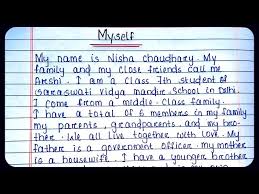 Myself
My name is Nisha chaudhary. My
family and my close friends call me
Arshi. I am a class 7th student of
Saraswati vidya mandir School in Delhi.
I come from a middle-class family.
I have a total of 6 members in my family
my parents, grandparents, and my bro-
ther. We all live together with love. My
father is a government officer. my mother
is a housewife. I have a younger brother